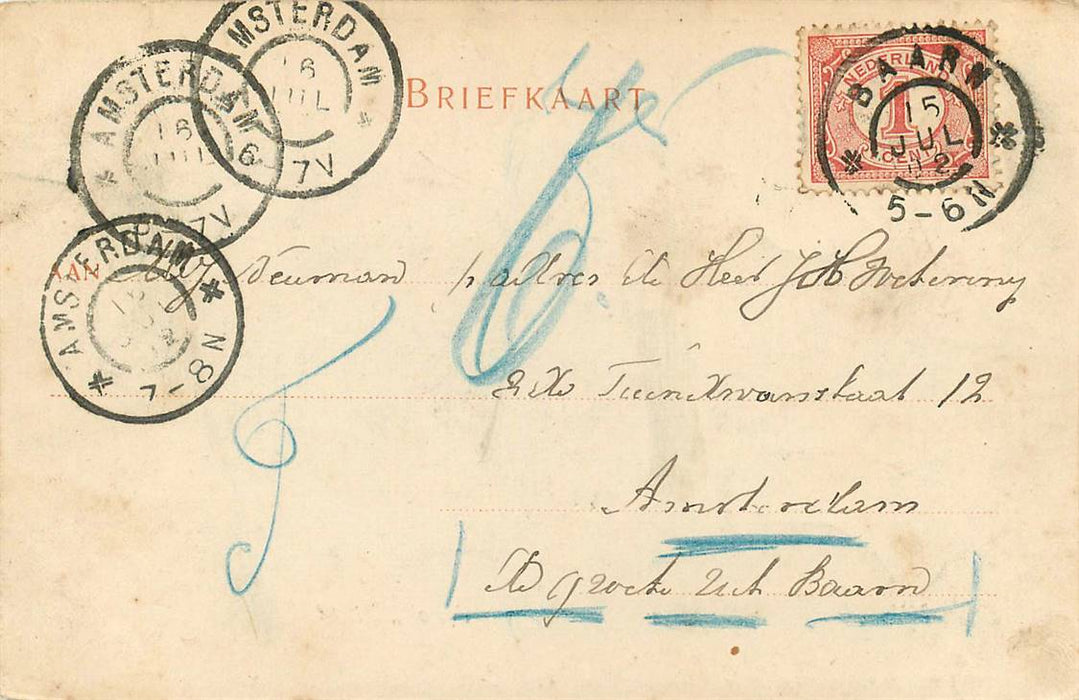 AMSTERDAM * 16 JUL 7V
* AMSTERDAM 6 16 JUL 7V
BRIEFKAART
NEDERLAND 1 CENT
* BAARN * 15 JUL 02 5-6N
* AMSTERDAM * 7-8N
AAN Neuman p adres de Heer J H Wetering
12
Amsterdam
de groete uit Baarn